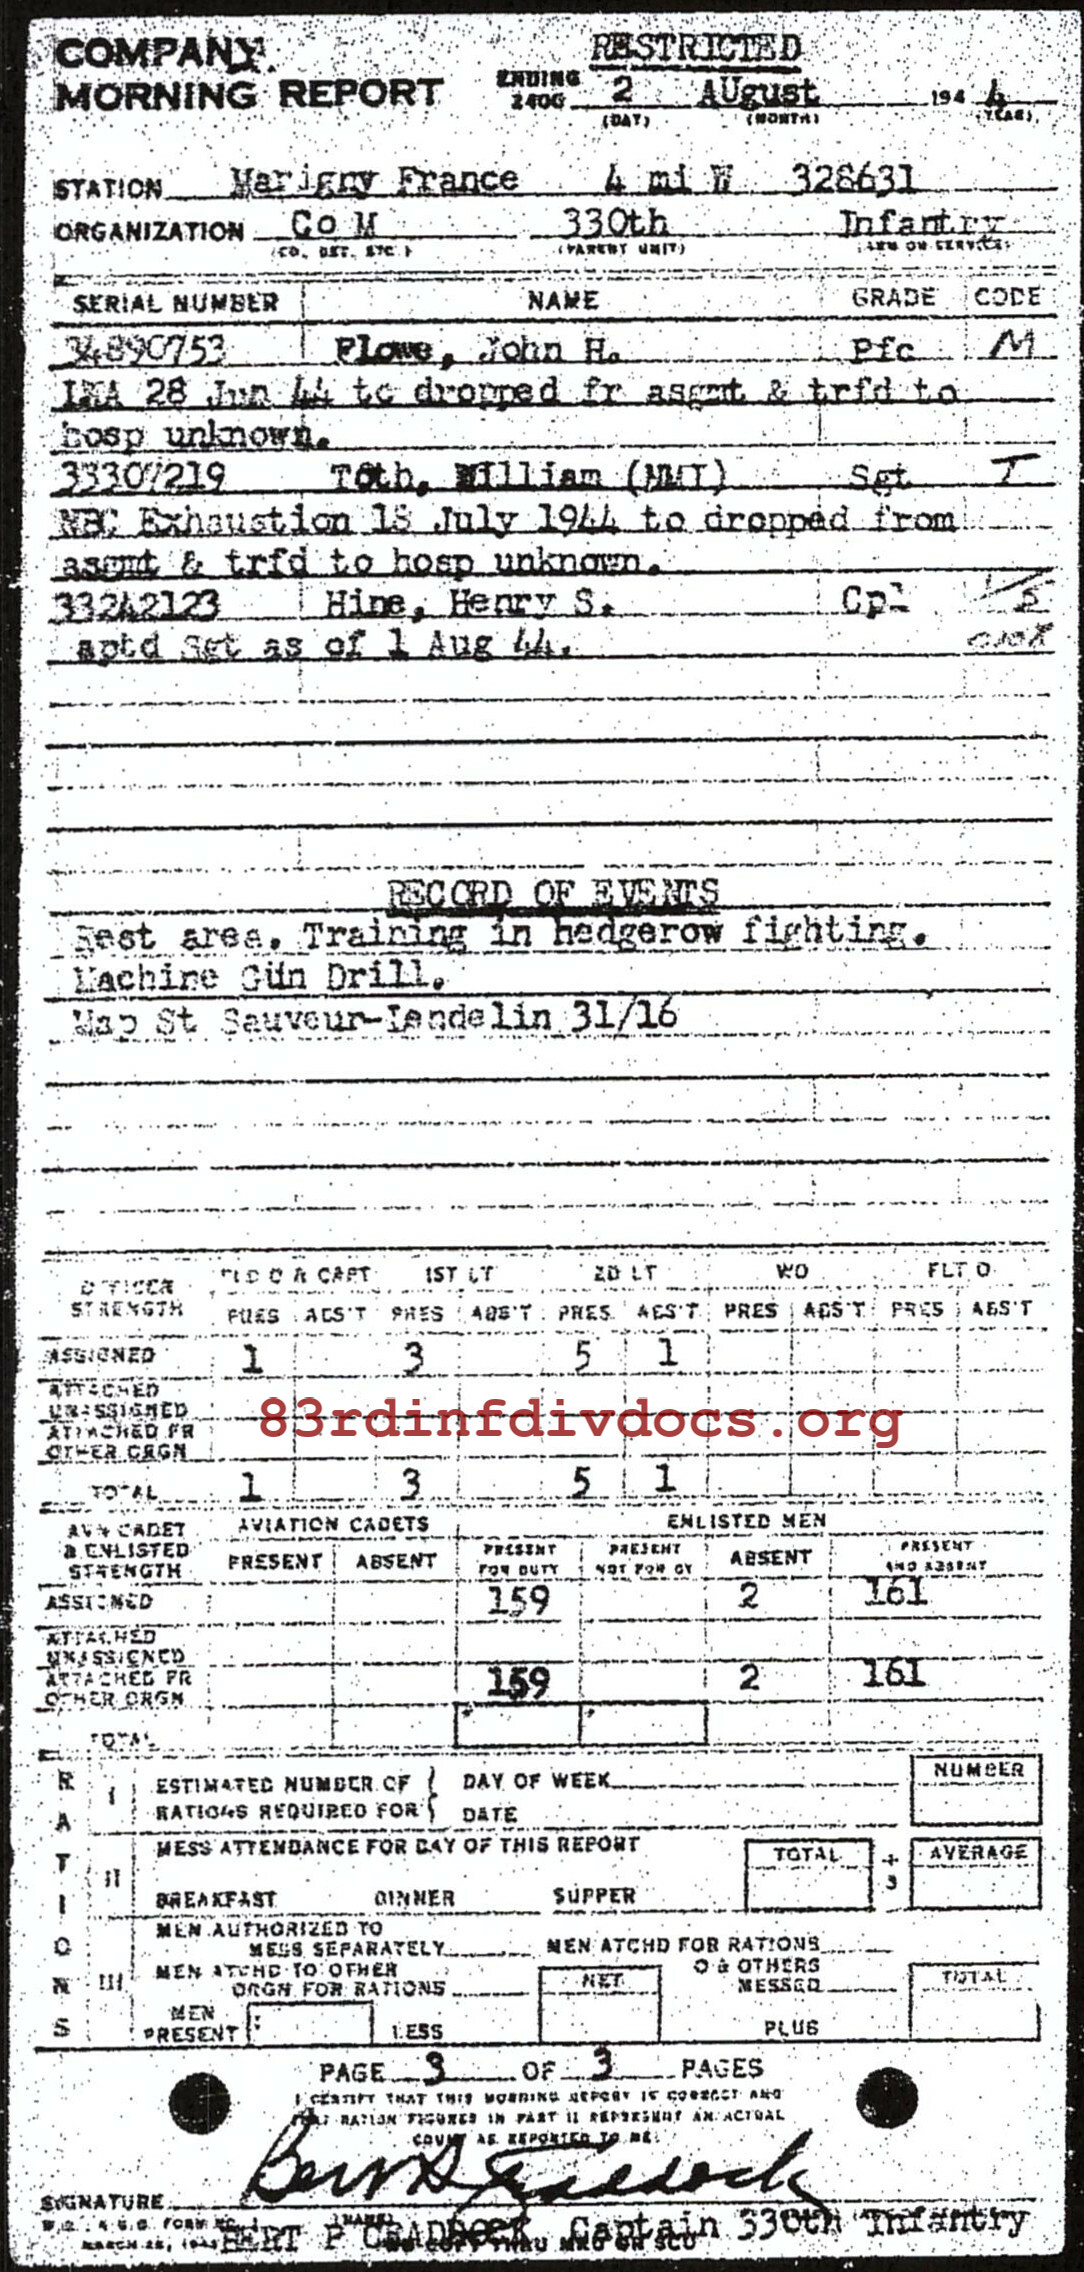 COMPANY
MORNING REPORT
RESTRICTED
ENDING 2400 2 AUgust 194 4
(DAY) (MONTH) (YEAR)
STATION Marigny France 4 mi W 328631
ORGANIZATION Co M 330th Infantry
(CO. DET. ETC.) (PARENT UNIT) (ARM OR SERVICE)
SERIAL NUMBER NAME GRADE CODE
34890753 Plowe, John H. Pfc M
LWA 28 Jun 44 to dropped fr asgmt & trfd to
hosp unknown.
33307219 Toth, William (NMI) Sgt T
NBC Exhaustion 18 July 1944 to dropped from
asgmt & trfd to hosp unknown.
33242123 Hine, Henry S. Cpl
aptd Sgt as of 1 Aug 44.
RECORD OF EVENTS
Rest area. Training in hedgerow fighting.
Machine Gun Drill.
Map St Sauveur-Lendelin 31/16
OFFICER STRENGTH FLD O & CAPT 1ST LT 2D LT WO FLT O
PRES ABS'T PRES ABS'T PRES ABS'T PRES ABS'T PRES ABS'T
ASSIGNED 1 3 5 1
ATTACHED UNASSIGNED
83rdinfdivdocs.org
ATTACHED FR OTHER ORGN
TOTAL 1 3 5 1
AVN CADET & ENLISTED STRENGTH AVIATION CADETS ENLISTED MEN
PRESENT ABSENT PRESENT FOR DUTY PRESENT NOT FOR DY ABSENT PRESENT AND ABSENT
ASSIGNED 159 2 161
ATTACHED UNASSIGNED
ATTACHED FR OTHER ORGN 159 2 161
TOTAL
RATIONS
I ESTIMATED NUMBER OF RATIONS REQUIRED FOR DAY OF WEEK NUMBER
DATE
II MESS ATTENDANCE FOR DAY OF THIS REPORT TOTAL ÷ 3 AVERAGE
BREAKFAST DINNER SUPPER
III MEN AUTHORIZED TO MESS SEPARATELY MEN ATCHD FOR RATIONS
MEN ATCHD TO OTHER ORGN FOR RATIONS NET O & OTHERS MESSED TOTAL
MEN PRESENT LESS PLUS
PAGE 3 OF 3 PAGES
I CERTIFY THAT THIS MORNING REPORT IS CORRECT AND
THAT RATION FIGURES IN PART II REPRESENT AN ACTUAL
COUNT AS REPORTED TO ME.
SIGNATURE
W.D., A.G.O. FORM NO. 1
BERT P CRADDOCK, Captain 330th Infantry